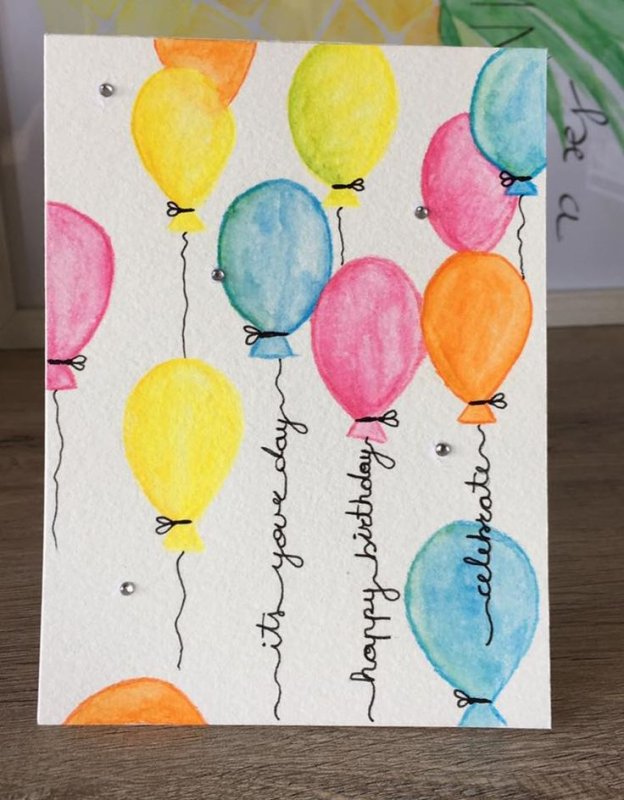 its your day
happy birthday
celebrate